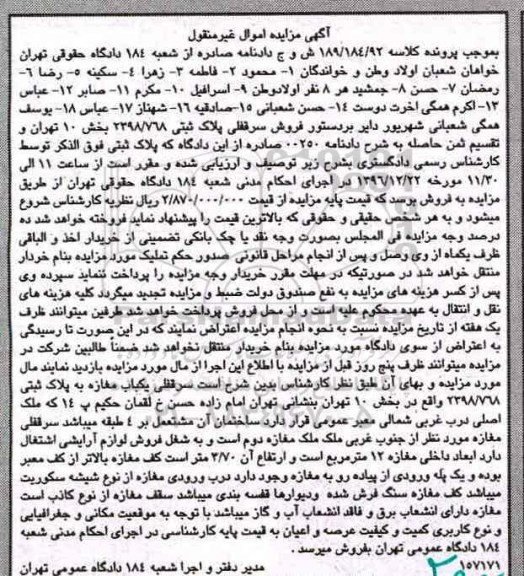 آگهی مزایده اموال غیرمنقول
بموجب پرونده کلاسه ۱۸۹/۱۸۴/۹۲ ش و ج دادنامه صادره از شعبه ۱۸۴ دادگاه حقوقی تهران
خواهان شعبان اولاد وطن و خواندگان ۱- محمود ۲- فاطمه ۳- زهرا ۴- سکینه ۵- رضا ۶-
رمضان ۷- حسن ۸- جمشید هر ۸ نفر اولادوطن ۹- اسرافیل ۱۰- مکرم ۱۱- صابر ۱۲- عباس
۱۳- اکرم همگی اخرت دوست ۱۴- حسن شعبانی ۱۵-صادقیه ۱۶- شهناز ۱۷- عباس ۱۸- یوسف
همگی شعبانی شهریور دایر بردستور فروش سرقفلی پلاک ثبتی ۲۳۹۸/۷۶۸ بخش ۱۰ تهران و
تقسیم ثمن حاصله به شرح دادنامه ۰۰۲۵۰ صادره از این دادگاه که پلاک ثبتی فوق الذکر توسط
کارشناس رسمی دادگستری بشرح زیر توصیف و ارزیابی شده و مقرر است از ساعت ۱۱ الی
۱۱/۳۰ مورخه ۱۳۹۶/۱۲/۲۲ در اجرای احکام مدنی شعبه ۱۸۴ دادگاه حقوقی تهران از طریق
مزایده به فروش برسد که قیمت پایه مزایده از قیمت ۲/۸۷۰/۰۰۰/۰۰۰ ریال نظریه کارشناس شروع
میشود و به هر شخص حقیقی و حقوقی که بالاترین قیمت را پیشنهاد نماید فروخته خواهد شد ده
درصد وجه مزایده فی المجلس بصورت وجه نقد یا چک بانکی تضمینی از خریدار اخذ و الباقی
ظرف یکماه از وی وصل و پس از انجام مراحل قانونی صدور حکم تملیک مورد مزایده بنام خردار
منتقل خواهد شد در صورتیکه در مهلت مقرر خریدار وجه مزایده را پرداخت ننماید سپرده وی
پس از کسر هزینه های مزایده به نفع صندوق دولت ضبط و مزایده تجدید میگردد کلیه هزینه های
نقل و انتقال به عهده محکوم علیه است و از محل فروش پرداخت خواهد شد طرفین میتوانند ظرف
یک هفته از تاریخ مزایده نسبت به نحوه انجام مزایده اعتراض نمایند که در این صورت تا رسیدگی
به اعتراض از سوی دادگاه مورد مزایده بنام خریدار منتقل نخواهد شد ضمناً طالبین شرکت در
مزایده میتوانند ظرف پنج روز قبل از مزایده با اطلاع این اجرا از مال مورد مزایده بازدید نمایند مال
مورد مزایده و بهای آن طبق نظر کارشناس بدین شرح است سرقفلی یکباب مغازه به پلاک ثبتی
۲۳۹۸/۷۶۸ واقع در بخش ۱۰ تهران بنشانی تهران امام زاده حسن خ لقمان حکیم پ ۱۴ که ملک
اصلی درب غربی شمالی معبر عمومی قرار دارد ساختمان آن مشتمل بر ۴ طبقه میباشد سرقفلی
مغازه مورد نظر از جنوب غربی ملک ملک مغازه دوم است و به شغل فروش لوازم آرایشی اشتغال
دارد ابعاد داخلی مغازه ۱۲ مترمربع است و ارتفاع آن ۳/۷۰ متر است کف مغازه بالاتر از کف معبر
بوده و یک پله ورودی از پیاده رو به مغازه وجود دارد درب ورودی مغازه از نوع شیشه سکوریت
میباشد کف مغازه سنگ فرش شده ودیوارها قفسه بندی میباشد سقف مغازه از نوع کاذب است
مغازه دارای انشعاب برق و فاقد انشعاب آب و گاز میباشد با توجه به موقعیت مکانی و جغرافیایی
و نوع کاربری کمیت و کیفیت عرصه و اعیان به قیمت پایه کارشناسی در اجرای احکام مدنی شعبه
۱۸۴ دادگاه عمومی تهران بفروش میرسد .
۱۵۷۱۷۱ مدیر دفتر و اجرا شعبه ۱۸۴ دادگاه عمومی تهران